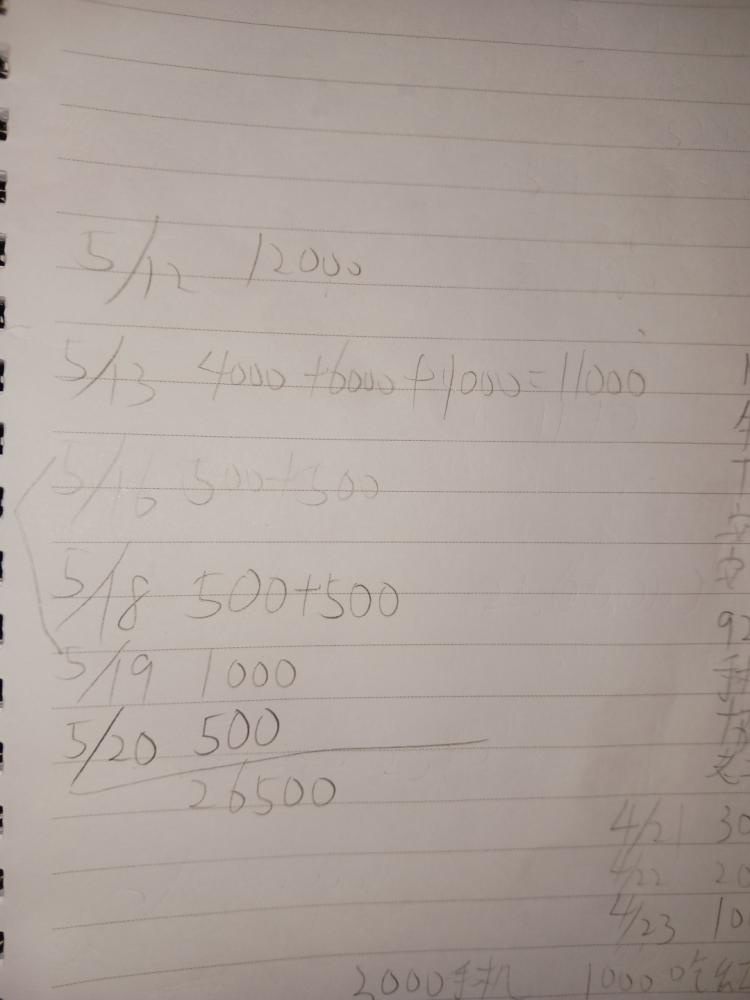 5/12 12000
5/13 4000+6000+1000=11000
5/16 500+500
5/18 500+500
5/19 1000
5/20 500
26500
92
4/21 30
4/22 20
4/23 10
2000手机 1000吃